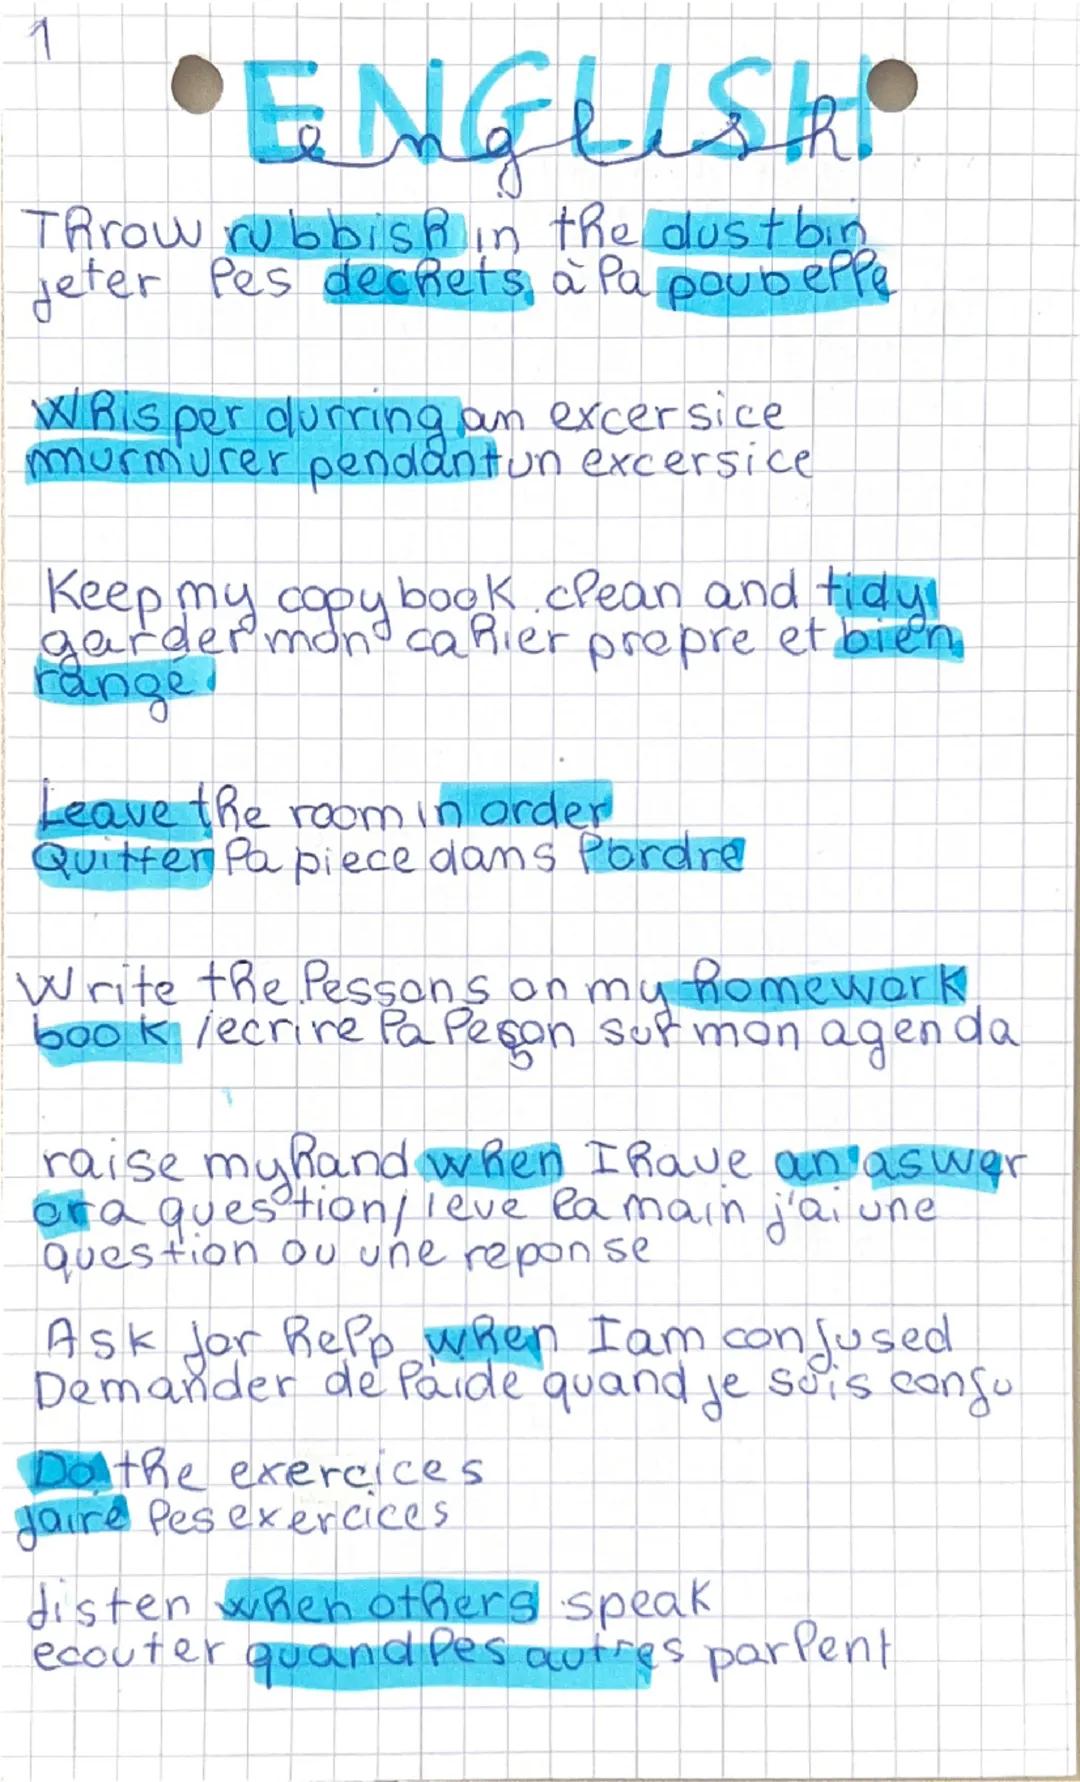 1
ENGLISH
english
Throw rubbish in the dustbin
jeter les dechets à la poubelle
Whisper durring an excersice
murmurer pendant un excersice
Keep my copybook clean and tidy
garder mon cahier prepre et bien
rangé
Leave the room in order
Quitter la piece dans l'ordre
Write the lessons on my homework
book / ecrire la leçon sur mon agenda
raise my hand when I have an aswer
or a question / leve la main j'ai une
question ou une reponse
Ask for help when I am confused
Demander de l'aide quand je suis confu
Do the exercices
faire les exercices
Listen when others speak
ecouter quand les autres parlent